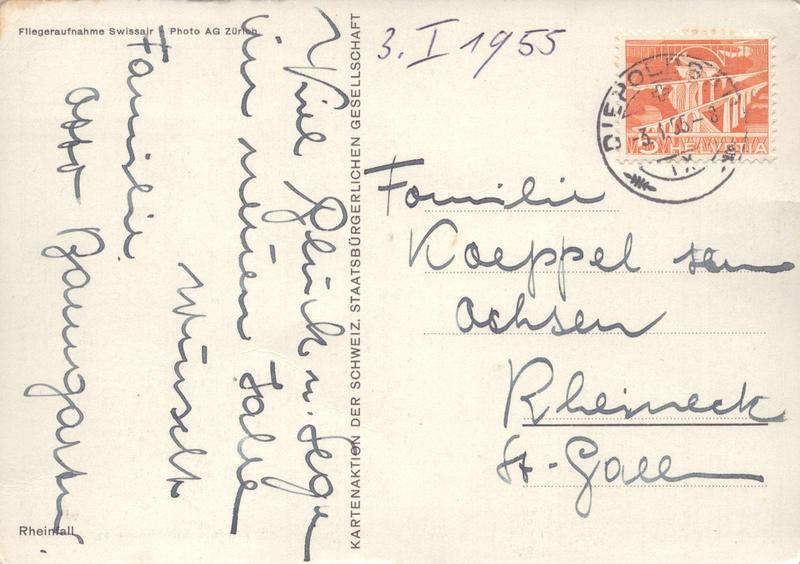 Fliegeraufnahme Swissair Photo AG Zürich
3. I 1955
5 HELVETIA
DIEPOLDSAU
3.1.55-8
Viel Glück u. Segen
im neuen Jahre
wünscht
Familie
Otto Baumgartner
KARTENAKTION DER SCHWEIZ. STAATSBÜRGERLICHEN GESELLSCHAFT
Familie
Koeppel zum
Ochsen
Rheineck
St-Gallen
Rheinfall